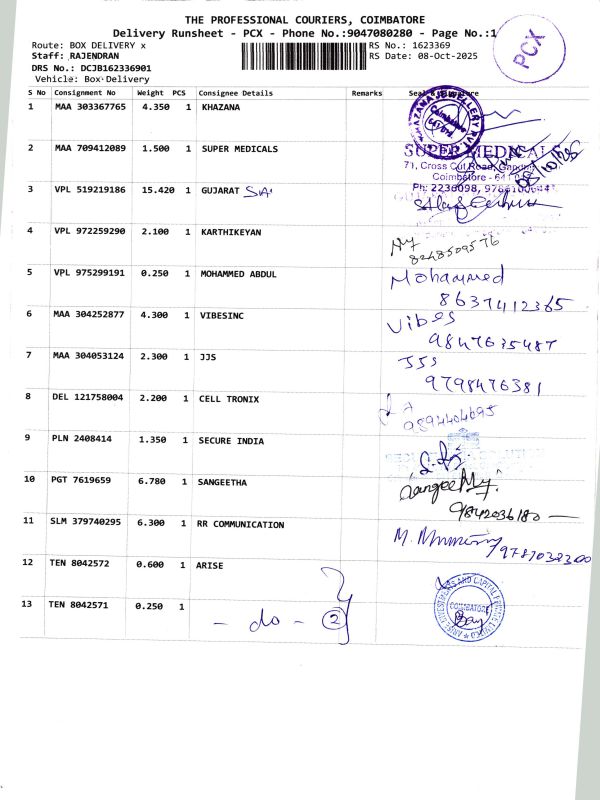 THE PROFESSIONAL COURIERS, COIMBATORE
Delivery Runsheet - PCX - Phone No.:9047080280 - Page No.:1
PCX
Route: BOX DELIVERY x
RS No.: 1623369
Staff: RAJENDRAN
RS Date: 08-Oct-2025
DRS No.: DCJB162336901
Vehicle: Box Delivery
S No Consignment No Weight PCS Consignee Details Remarks Seal & Signature
1 MAA 303367765 4.350 1 KHAZANA
2 MAA 709412089 1.500 1 SUPER MEDICALS
SUPER MEDICALS
71, Cross Cut Road,
Coimbatore
3 VPL 519219186 15.420 1 GUJARAT
Ph: 2236098,
4 VPL 972259290 2.100 1 KARTHIKEYAN
8248509576
5 VPL 975299191 0.250 1 MOHAMMED ABDUL
Mohammed
8637412365
6 MAA 304252877 4.300 1 VIBESINC
Vibes
9847635487
7 MAA 304053124 2.300 1 JJS
JJS
9798476381
8 DEL 121758004 2.200 1 CELL TRONIX
9894404695
9 PLN 2408414 1.350 1 SECURE INDIA
10 PGT 7619659 6.780 1 SANGEETHA
9842036180
11 SLM 379740295 6.300 1 RR COMMUNICATION
12 TEN 8042572 0.600 1 ARISE
13 TEN 8042571 0.250 1
- do - 2
COIMBATORE